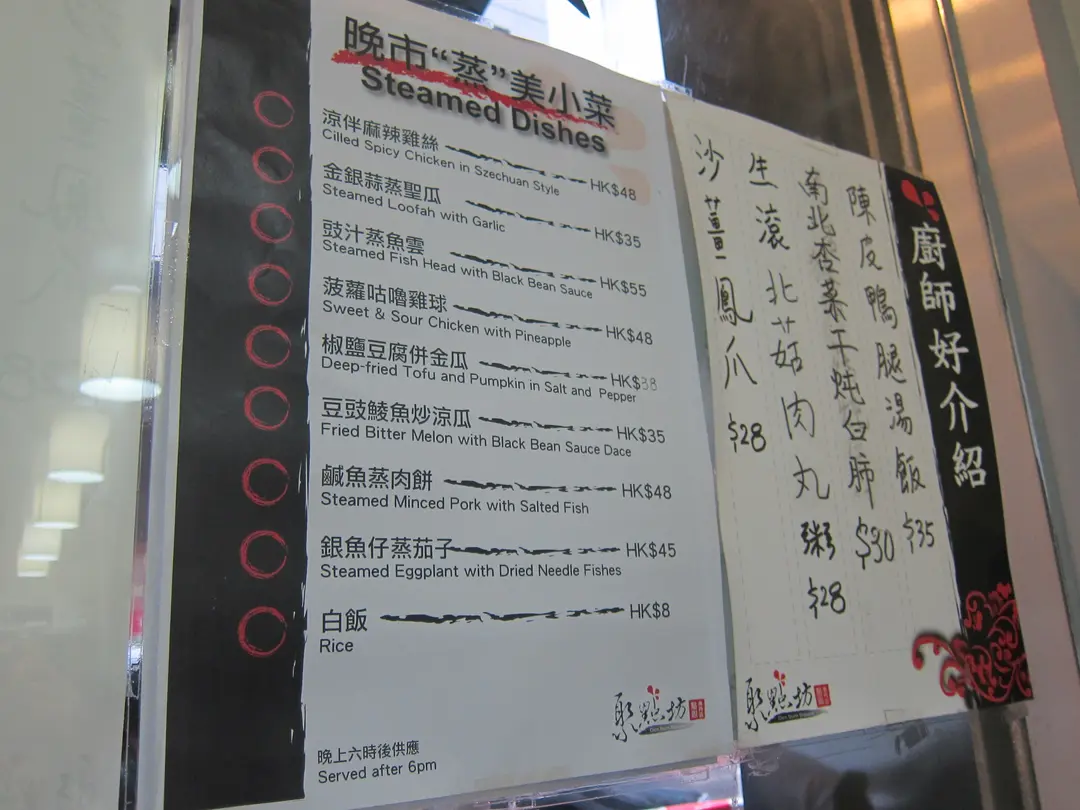 晚市“蒸”美小菜
Steamed Dishes
涼伴麻辣雞絲 HK$48
Cilled Spicy Chicken in Szechuan Style
金銀蒜蒸聖瓜 HK$35
Steamed Loofah with Garlic
豉汁蒸魚雲 HK$55
Steamed Fish Head with Black Bean Sauce
菠蘿咕嚕雞球 HK$48
Sweet & Sour Chicken with Pineapple
椒鹽豆腐併金瓜 HK$38
Deep-fried Tofu and Pumpkin in Salt and Pepper
豆豉鯪魚炒涼瓜 HK$35
Fried Bitter Melon with Black Bean Sauce Dace
鹹魚蒸肉餅 HK$48
Steamed Minced Pork with Salted Fish
銀魚仔蒸茄子 HK$45
Steamed Eggplant with Dried Needle Fishes
白飯 HK$8
Rice
晚上六時後供應
Served after 6pm
聚點坊
廚師好介紹
陳皮鴨腿湯飯 $35
南北杏菜干炖白肺 $30
生滾北菇肉丸粥 $28
沙薑鳳爪 $28
聚點坊